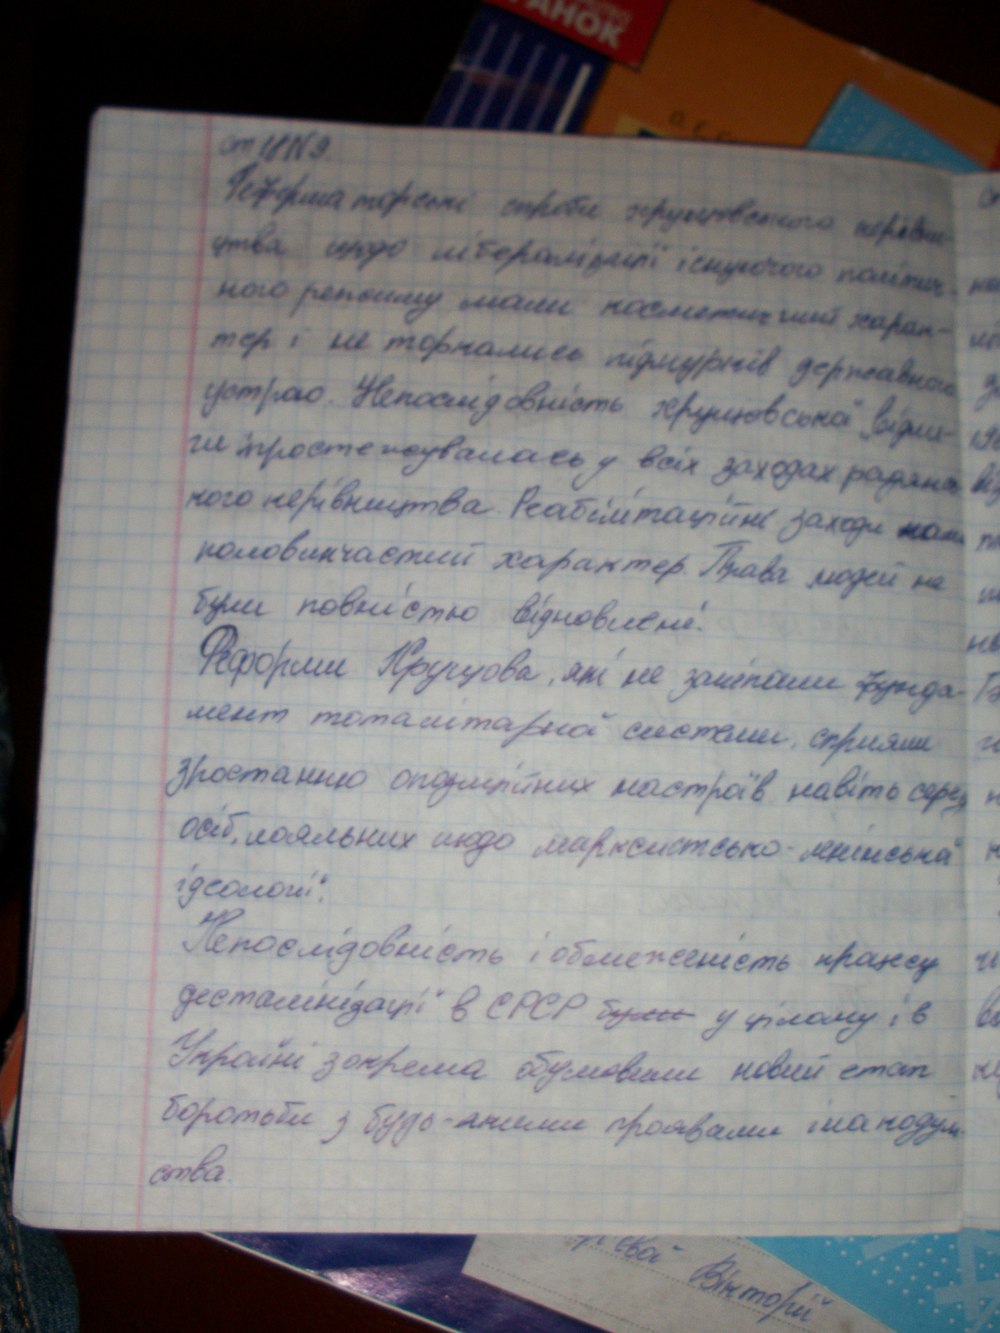 РАНОК
Реформаторські спроби хрущовського керівни-
цтва щодо лібералізації існуючого політич-
ного режиму мали косметичний харак-
тер і не торкались підмурків державного
устрою. Непослідовність хрущовської „відли-
ги" простежувалась у всіх заходах радянсь-
кого керівництва. Реабілітаційні заходи мали
половинчастий характер. Права людей не
були повністю відновлені.
Реформи Хрущова, які не зачіпали фунда-
мент тоталітарної системи, сприяли
зростанню опозиційних настроїв навіть серед
осіб, лояльних щодо марксистсько-ленінської
ідеології.
Непослідовність і обмеженість процесу
десталінізації в СРСР були у цілому і в
Україні зокрема обумовили новий етап
боротьби з будь-якими проявами інакодум-
ства.
Вікторії